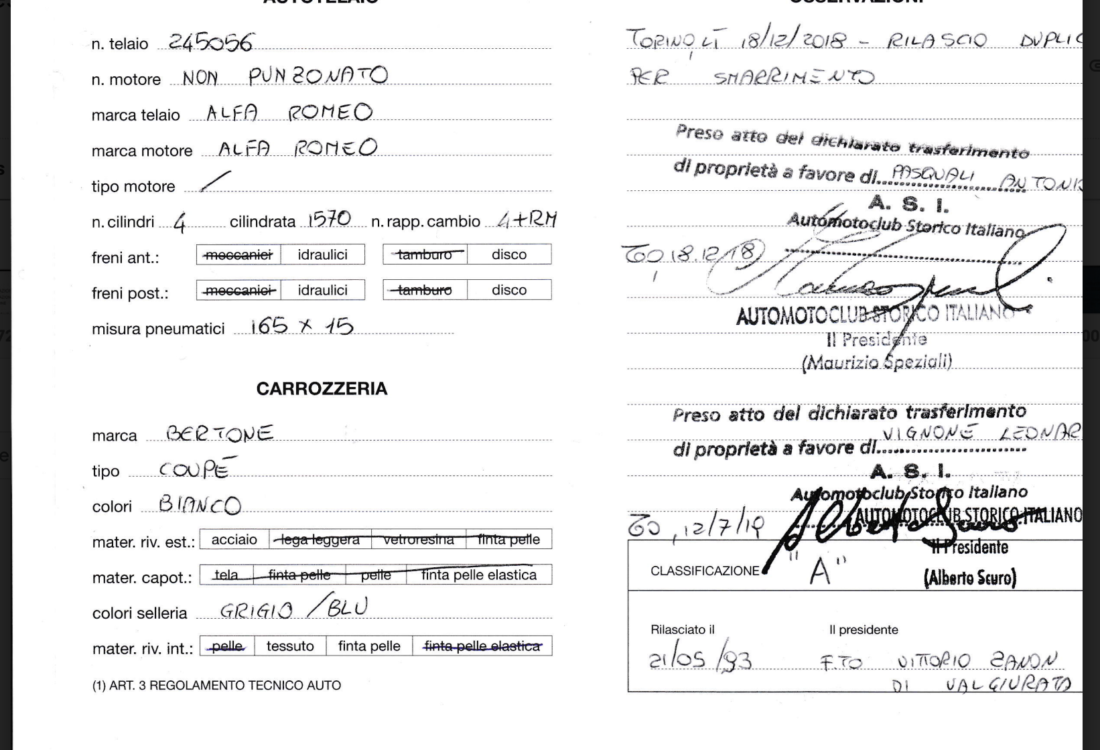 AUTOTELAIO
n. telaio 245056
n. motore NON PUNZONATO
marca telaio ALFA ROMEO
marca motore ALFA ROMEO
tipo motore /
n. cilindri 4 cilindrata 1570 n. rapp. cambio 4+RM
freni ant.: meccanici idraulici tamburo disco
freni post.: meccanici idraulici tamburo disco
misura pneumatici 165 x 15
CARROZZERIA
marca BERTONE
tipo COUPÉ
colori BIANCO
mater. riv. est.: acciaio lega leggera vetroresina finta pelle
mater. capot.: tela finta pelle pelle finta pelle elastica
colori selleria GRIGIO / BLU
mater. riv. int.: pelle tessuto finta pelle finta pelle elastica
(1) ART. 3 REGOLAMENTO TECNICO AUTO
OSSERVAZIONI
TORINO, LÌ 18/12/2018 - RILASCIO DUPLIC
PER SMARRIMENTO
Preso atto del dichiarato trasferimento
di proprietà a favore di PASQUALI ANTONI
A. S. I.
Automotoclub Storico Italiano
TO, 18.12.18
AUTOMOTOCLUB STORICO ITALIANO
Il Presidente
(Maurizio Speziali)
Preso atto del dichiarato trasferimento
di proprietà a favore di VIGNONE LEONAR
A. S. I.
Automotoclub Storico Italiano
AUTOMOTOCLUB STORICO ITALIANO
TO, 12/7/19
Il Presidente
(Alberto Scuro)
CLASSIFICAZIONE "A"
Rilasciato il Il presidente
21/05/93 F.TO VITTORIO ZANON
DI VALGIURATA